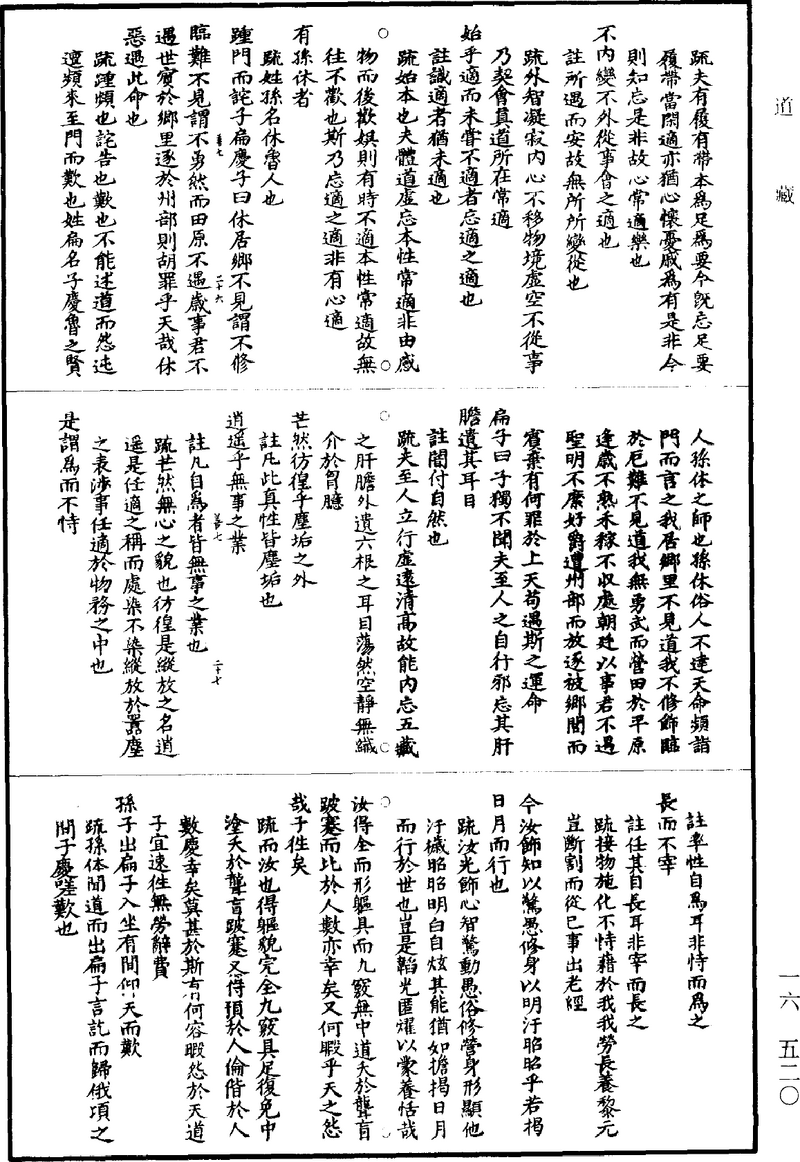 道藏
疏夫有履有帶本爲足爲要今旣忘足要
履帶當閑適亦猶心懷憂戚爲有是非今
則知忘是非故心常適樂也
不內變不外從事會之適也
註所遇而安故無所變從也
疏外智凝寂內心不移物境虛空不從事
乃契會眞道所在常適
始乎適而未嘗不適者忘適之適也
註識適者猶未適也
疏始本也夫體道虛忘本性常適非由感
物而後歡娛則有時不適本性常適故無
往不歡也斯乃忘適之適非有心適
有孫休者
疏姓孫名休魯人也
踵門而詫子扁慶子曰休居鄉不見謂不修
臨難不見謂不勇然而田原不遇歲事君不
遇世賓於鄉里逐於州部則胡罪乎天哉休
惡遇此命也
疏踵頻也詫告也歎也不能述道而然迍
邅頻來至門而歎也姓扁名子慶魯之賢
二十六
人孫休之師也孫休俗人不達天命頻詣
門而言之我居鄉里不見道我不修飾臨
於厄難不見道我無勇武而營田於平原
逢歲不熟禾稼不収處朝廷以事君不遇
聖明不縻好爵遭州部而放逐被鄉閭而
賓棄有何罪於上天苟遇斯之運命
扁子曰子獨不聞夫至人之自行邪忘其肝
膽遺其耳目
註闇付自然也
疏夫至人立行虛遠清高故能內忘五藏
之肝膽外遺六根之耳目蕩然空靜無纎
介於胷臆
芒然彷徨乎塵垢之外
註凡此真性皆塵垢也
逍遥乎無事之業
註凡自爲者皆無事之業也
疏芒然無心之貌也彷徨是縱放之名逍
遥是任適之稱而處染不染縱放於囂塵
之表涉事任適於物務之中也
是謂爲而不恃
二十七
註率性自爲耳非恃而爲之
長而不宰
註任其自長耳非宰而長之
疏接物施化不恃藉於我我勞長養黎元
豈斷割而從已事出老經
今汝飾知以驚愚修身以明汙昭昭乎若揭
日月而行也
疏汝光飾心智驚動愚俗修營身形顯他
汙穢昭昭明白自炫其能猶如擔揭日月
而行於世也豈是韜光匿耀以蒙養恬哉
汝得全而形軀具而九竅無中道夭於聾盲
跛蹇而比於人數亦幸矣又何暇乎天之怨
哉子往矣
疏而汝也得軀貌完全九竅具足復免中
塗夭於聾盲跛蹇又得預於人倫偕於人
數慶幸矣莫甚於斯有何容暇怨於天道
子宜速往無勞辭費
孫子出扁子入坐有間仰天而歎
疏孫休聞道而出扁子言訖而歸俄頃之
間子慶嗟歎也
一六 五二〇